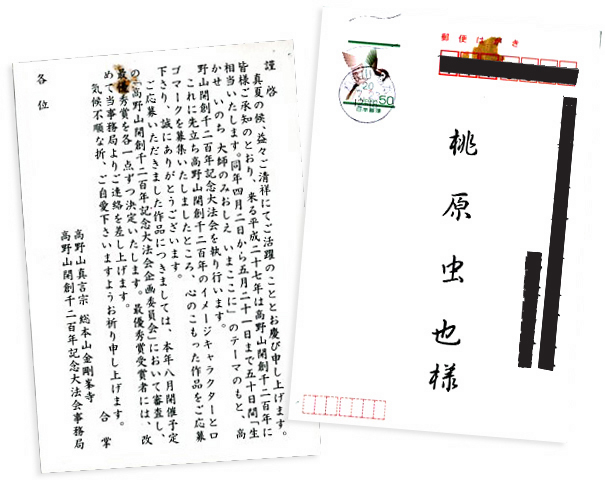 謹啓
真夏の候、益々ご清祥にてご活躍のこととお慶び申し上げます。
皆様ご承知のとおり、来る平成二十七年は高野山開創千二百年に
相当いたします。同年四月二日から五月二十一日まで五十日間「生
かせ いのち 大師のみおしえ いまここに」のテーマのもと、高
野山開創千二百年記念大法会を執り行います。
これに先立ち高野山開創千二百年のイメージキャラクターとロ
ゴマークを募集いたしましたところ、心のこもった作品をご応募
下さり、誠にありがとうございます。
ご応募いただきました作品につきましては、本年八月開催予定
の「高野山開創千二百年記念大法会企画委員会」において審査し、
最優秀賞を各一点ずつ決定いたします。最優秀賞受賞者には、改
めて当事務局よりご連絡を差し上げます。
気候不順な折、ご自愛下さいますようお祈り申し上げます。
合掌
高野山真言宗 総本山金剛峯寺
高野山開創千二百年記念大法会事務局
各位
郵便はがき
50
日本郵便
桃原虫也様